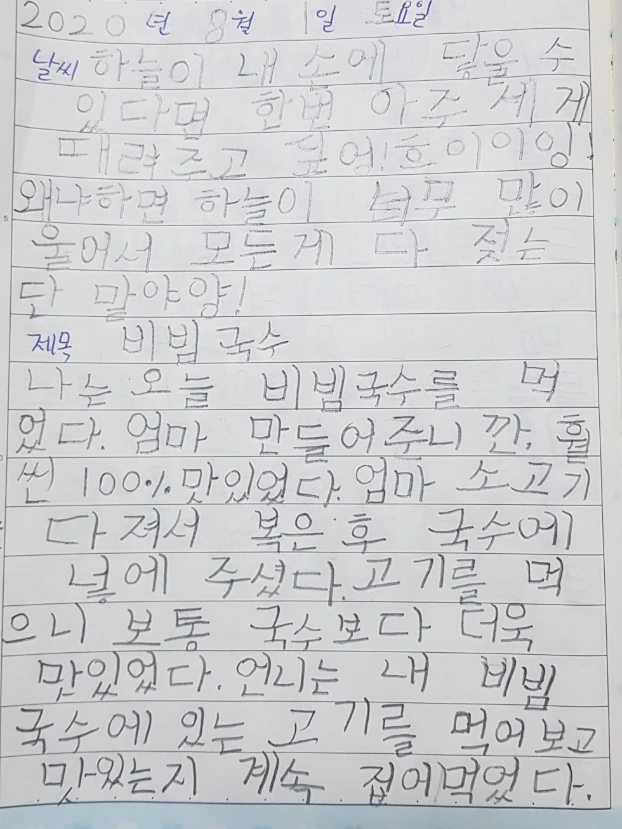 2020년 8월 1일 토요일
날씨 하늘이 내 손에 닿을 수
있다면 한번 아주 세게
때려주고 싶어! 흐이이잉!
왜냐하면 하늘이 너무 많이
울어서 모든게 다 젖는
단 말야양!
제목 비빔국수
나는 오늘 비빔국수를 먹
었다. 엄마 만들어주니깐, 훨
씬 100% 맛있었다. 엄마 소고기
다져서 볶은 후 국수에
넣에 주셨다. 고기를 먹
으니 보통 국수보다 더욱
맛있었다. 언니는 내 비빔
국수에 있는 고기를 먹어보고
맛있는지 계속 집어먹었다.